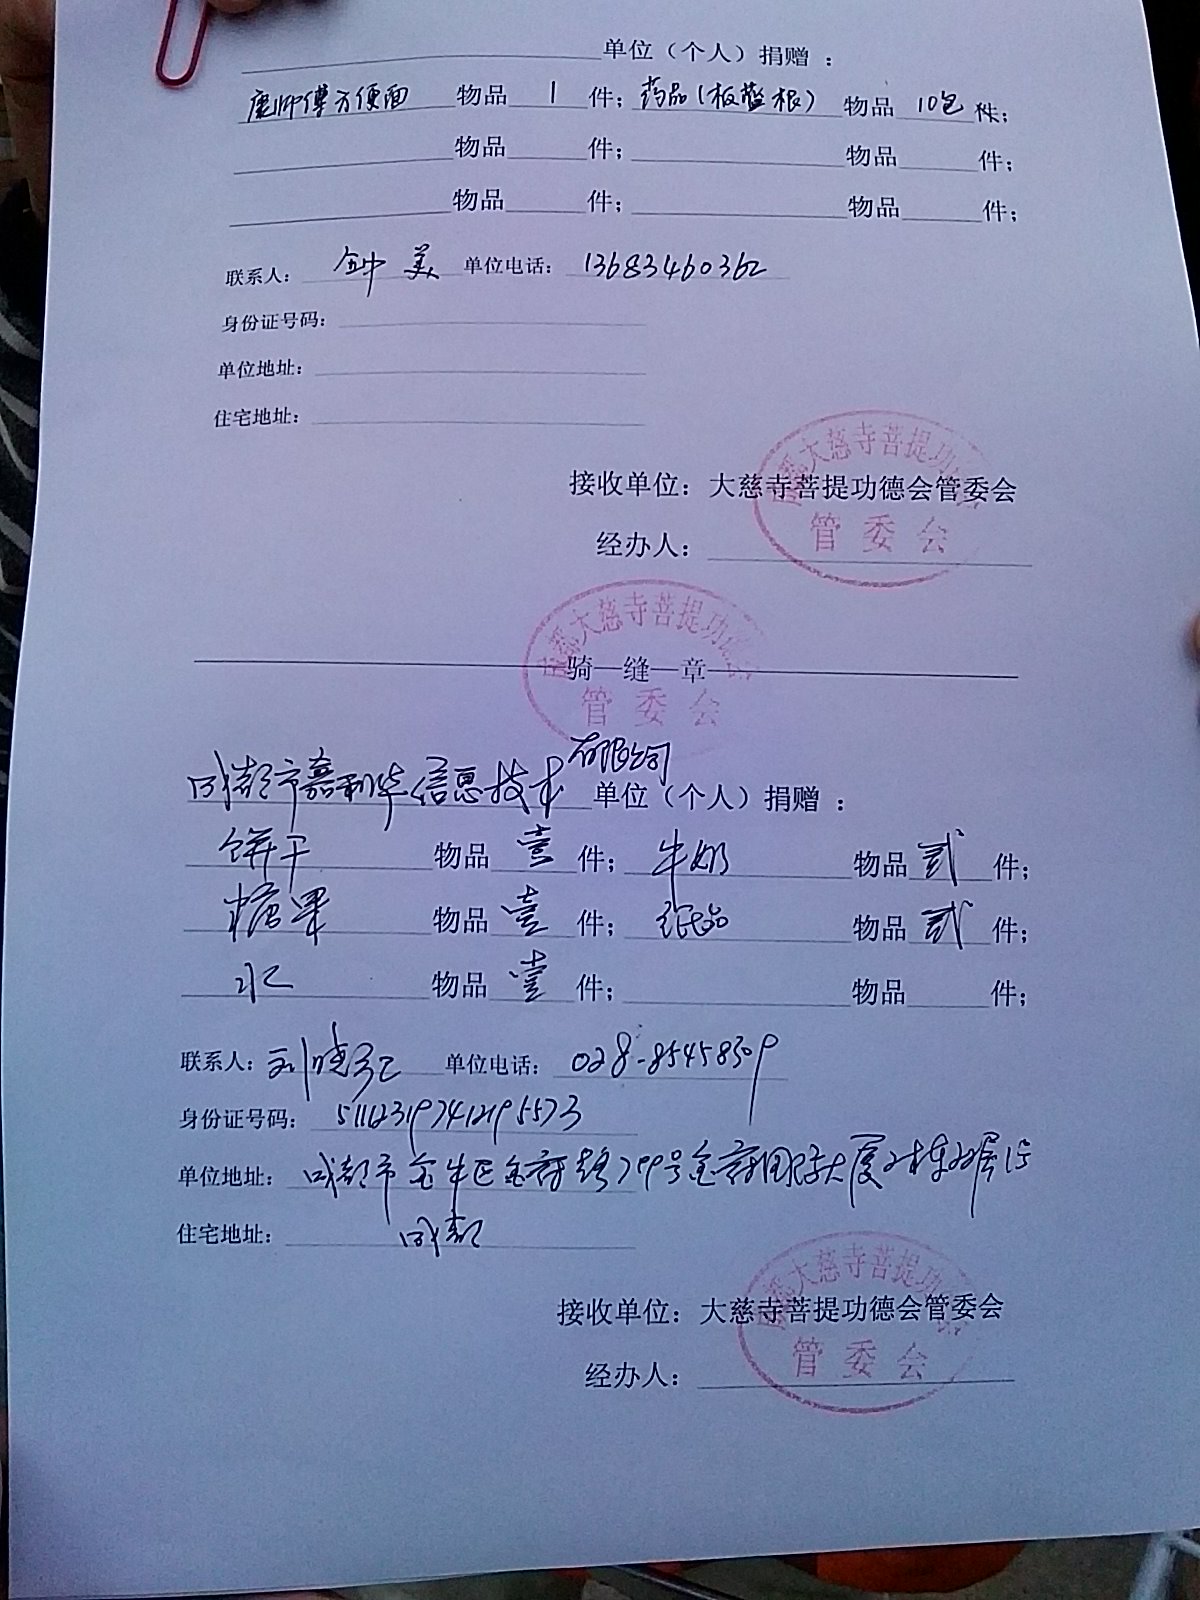 单位（个人）捐赠：
康师傅方便面 物品 1 件；药品（板蓝根） 物品 10包 件；
物品 件； 物品 件；
物品 件； 物品 件；
联系人： 钟美 单位电话： 13683460362
身份证号码：
单位地址：
住宅地址：
成都大慈寺菩提功德会
接收单位：大慈寺菩提功德会管委会
管委会
经办人：
成都大慈寺菩提功德会
骑—缝—章
管委会
有限公司
成都市嘉利华信息技术 单位（个人）捐赠：
饼干 物品 壹 件； 牛奶 物品 贰 件；
糖果 物品 壹 件； 纸品 物品 贰 件；
水 物品 壹 件； 物品 件；
联系人：刘晓 单位电话： 028-85458309
身份证号码： 511623197412195573
单位地址： 成都市金牛区金府路799号金府国际大厦2栋 层 号
住宅地址： 成都
成都大慈寺菩提功德会
接收单位：大慈寺菩提功德会管委会
管委会
经办人：